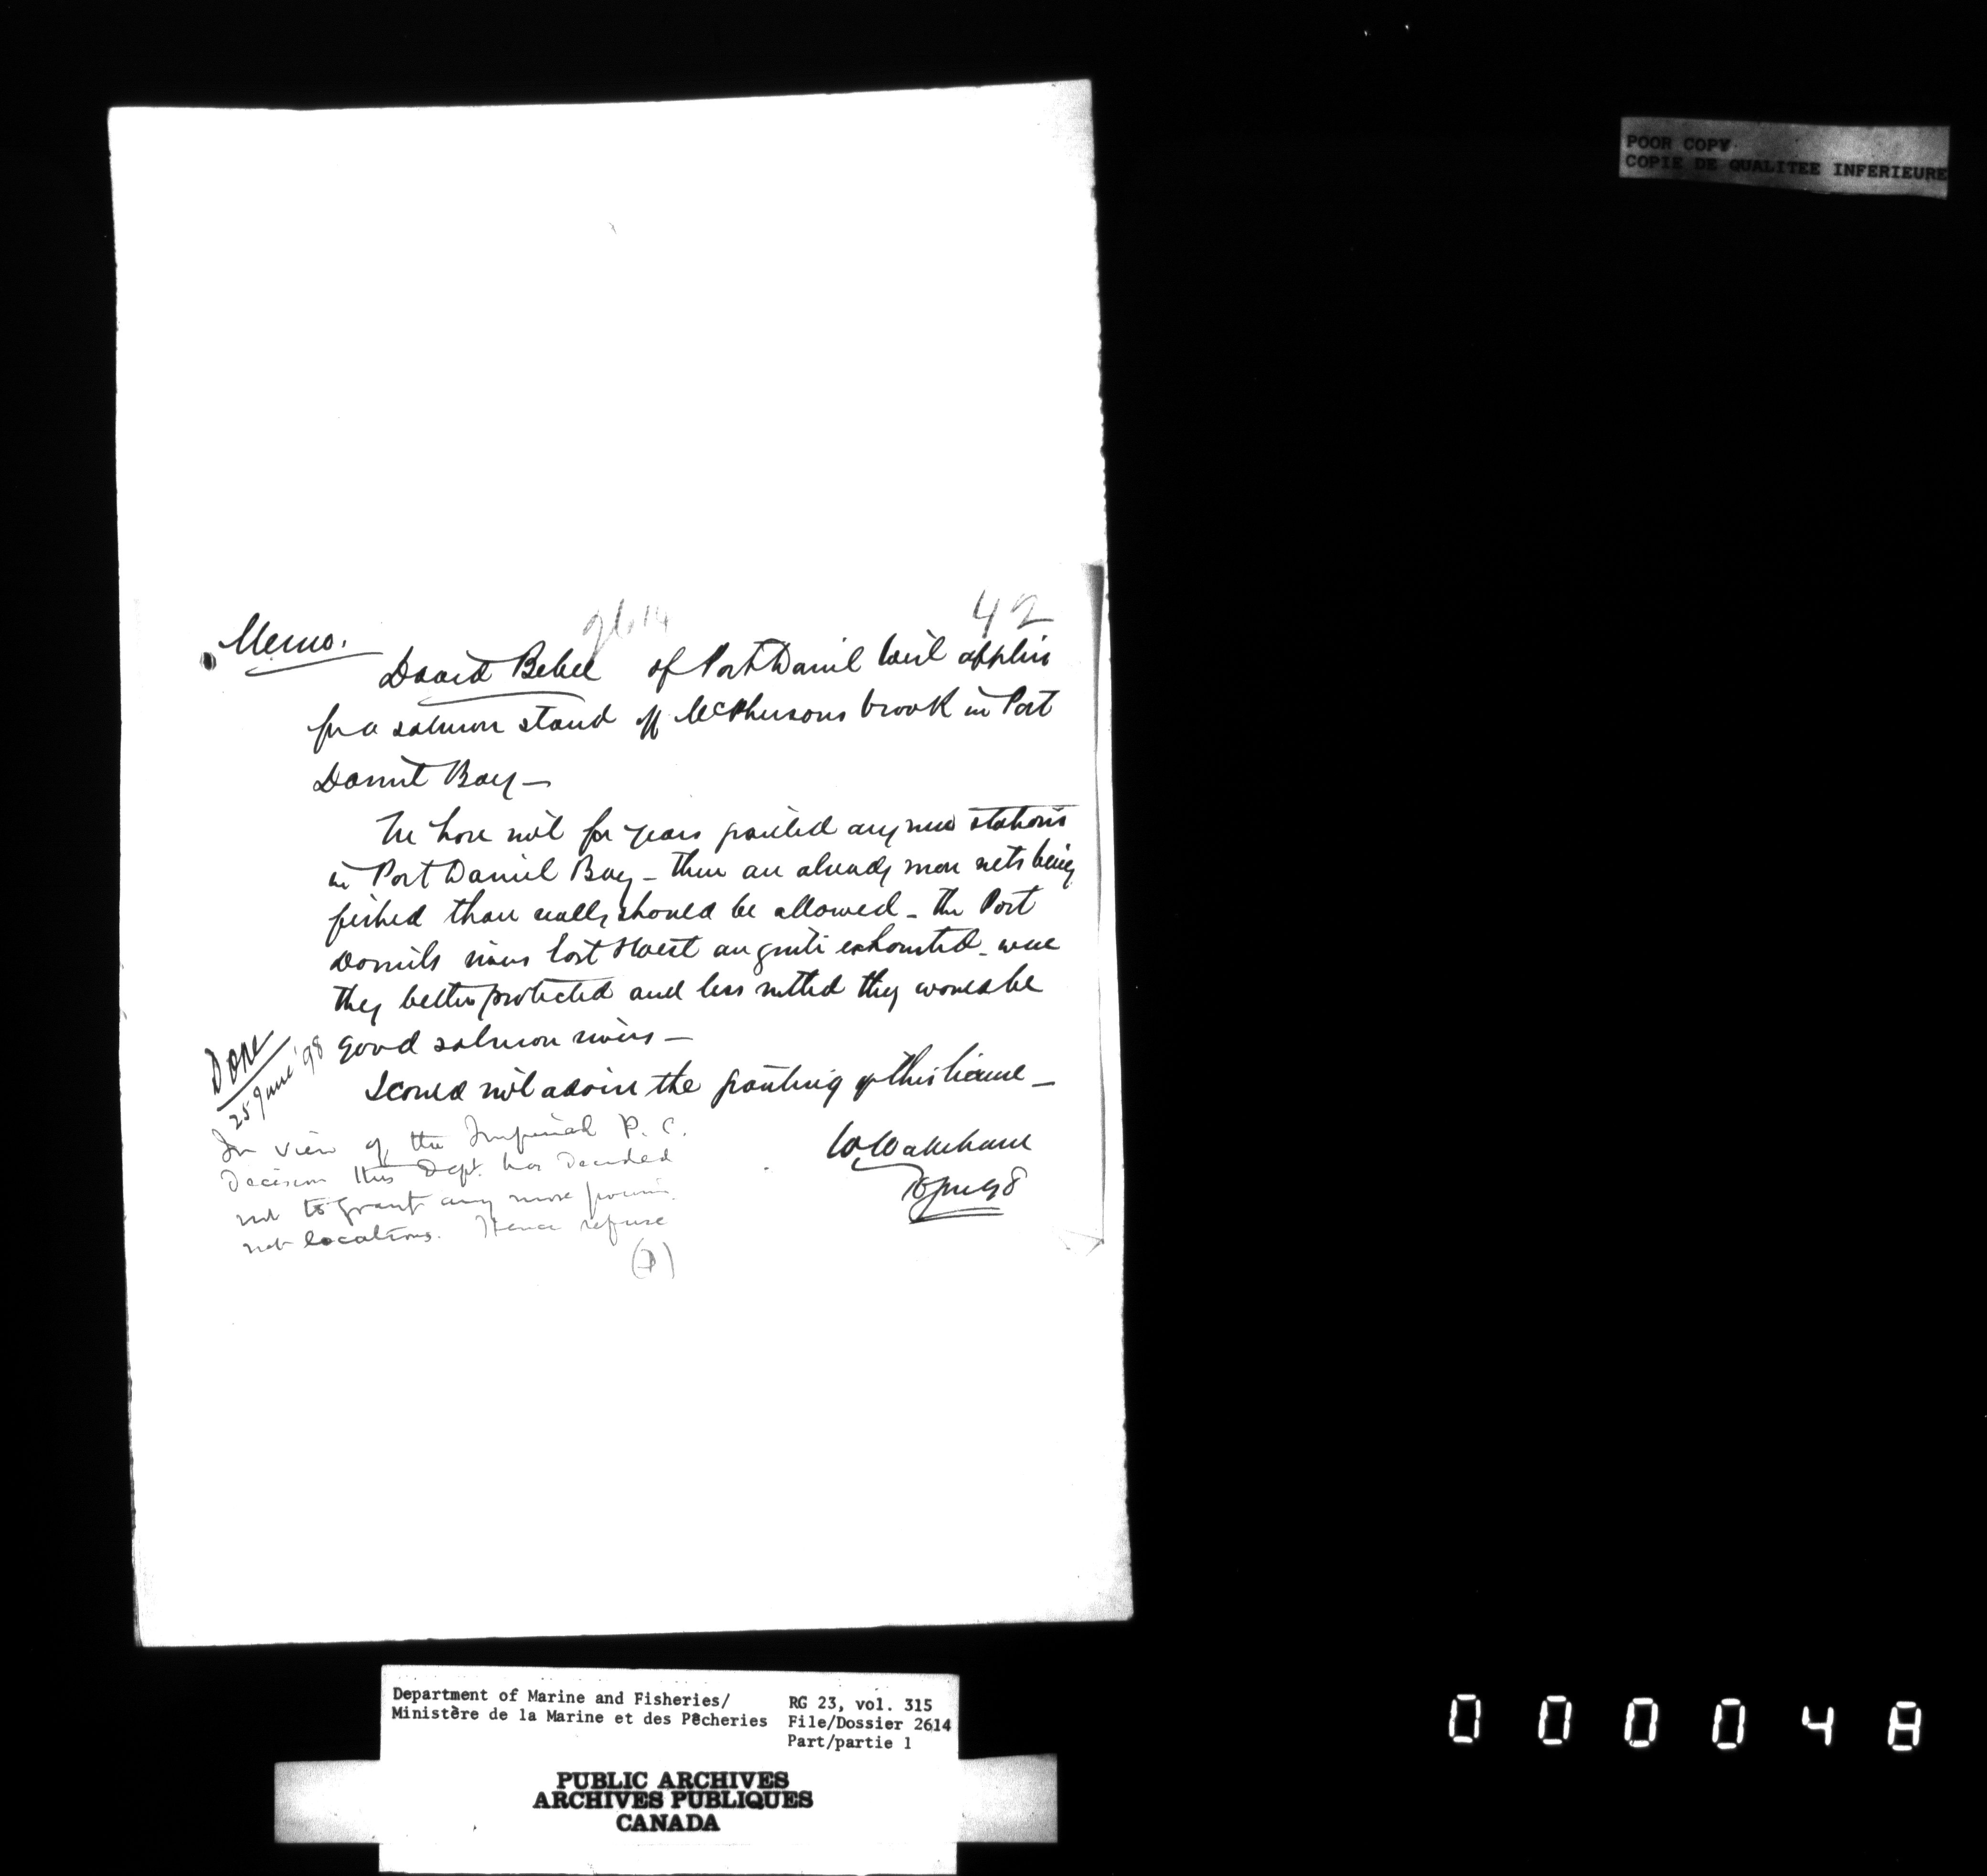 POOR COPY
COPIE DE QUALITEE INFERIEURE
2614
42
Memo.
David Bebee of Port Daniel West applies
for a salmon stand off McPhersons brook in Port
Daniel Bay—
We have not for years granted any new stations
in Port Daniel Bay – there are already more nets being
fished than really should be allowed – the Port
Daniels rivers East & West are quite exhausted – were
they better protected and less netted they would be
good salmon rivers—
I could not advise the granting of this license—
W Wakeham
Done
25 June '98
In view of the Imperial P. C.
Decision this Dept. has decided
not to grant any more
net locations. Hence refuse
Department of Marine and Fisheries/
Ministère de la Marine et des Pêcheries
RG 23, vol. 315
File/Dossier 2614
Part/partie 1
PUBLIC ARCHIVES
ARCHIVES PUBLIQUES
CANADA
000048